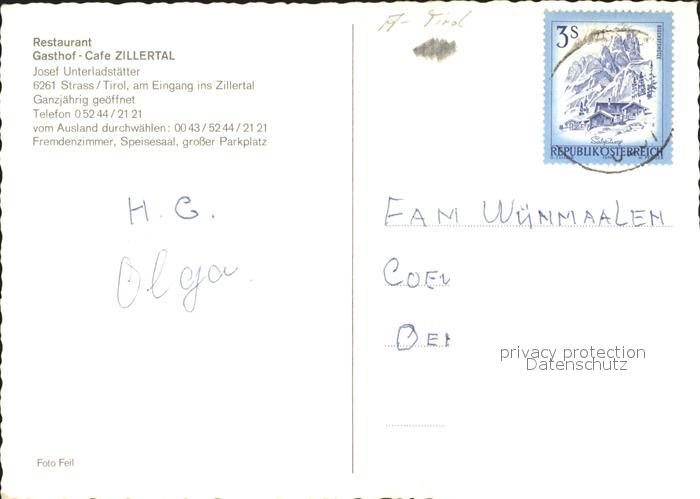 Restaurant
Gasthof - Cafe ZILLERTAL
Josef Unterladstätter
6261 Strass / Tirol, am Eingang ins Zillertal
Ganzjährig geöffnet
Telefon 0 52 44 / 21 21
vom Ausland durchwählen: 00 43 / 52 44 / 21 21
Fremdenzimmer, Speisesaal, großer Parkplatz
A- Tirol
3S
Salzburg
REPUBLIK ÖSTERREICH
H. G.
Olga.
FAM WÜNMAALEN
COEN
BEI
privacy protection
Datenschutz
Foto Feil